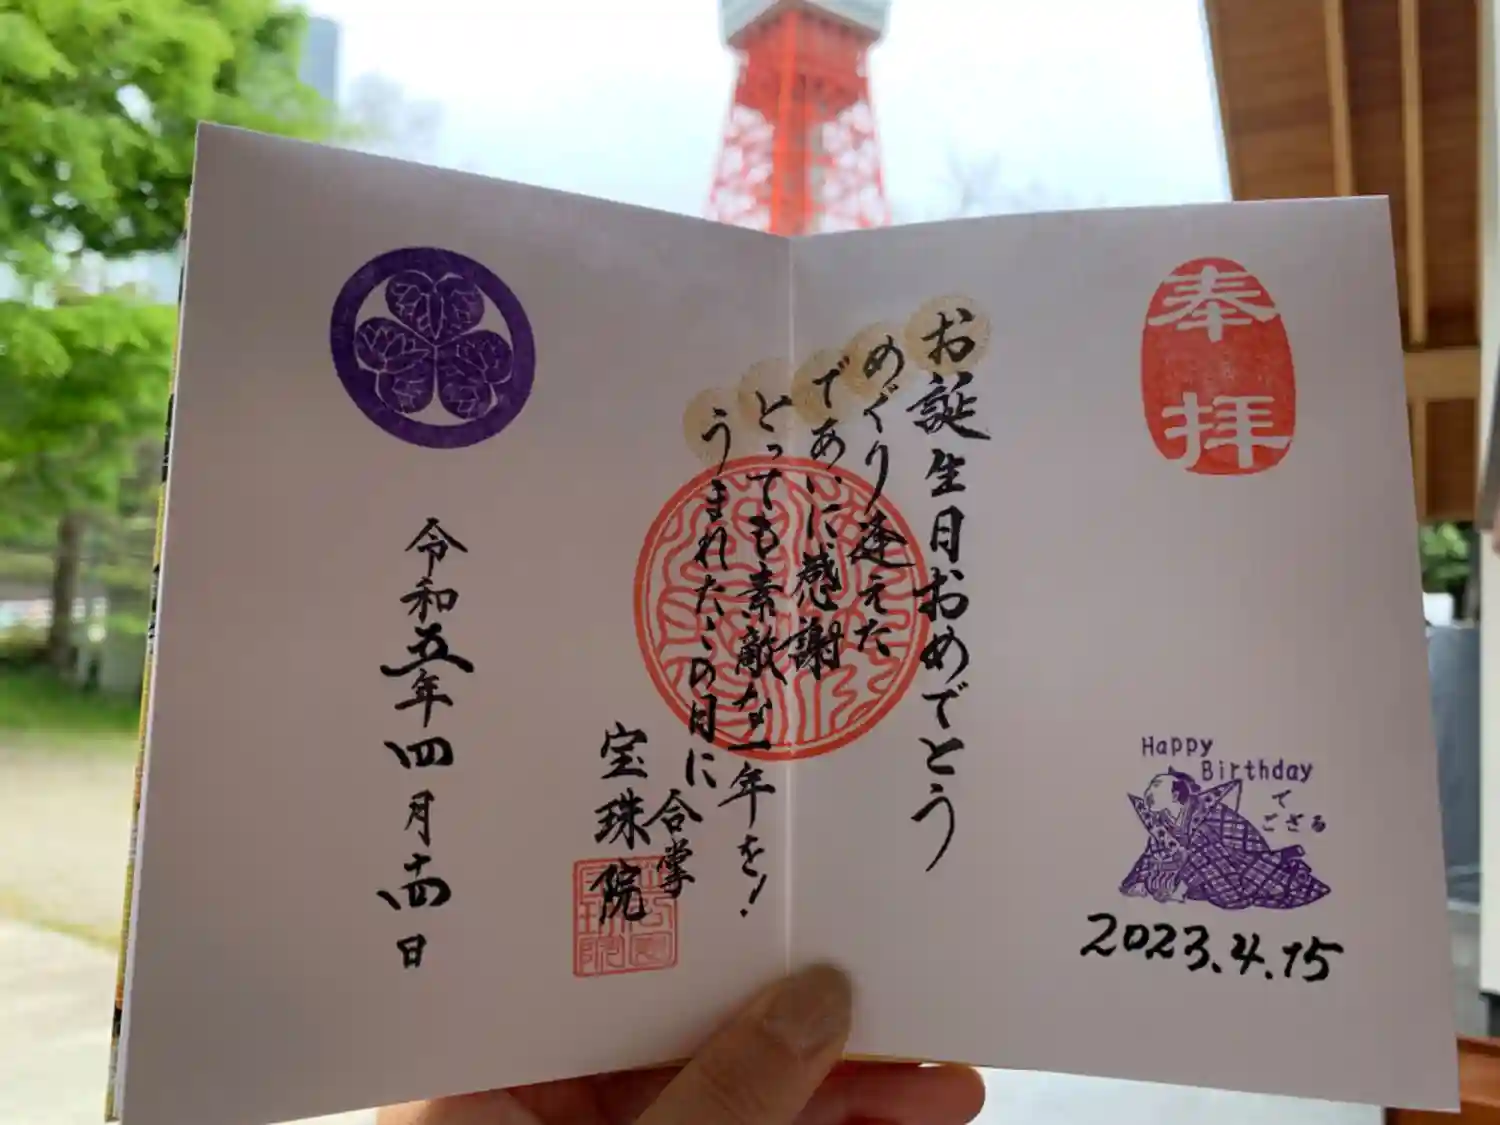 奉拝
Happy
Birthday
で
ござる
2023.4.15
お誕生日おめでとう
めぐり逢えた
であいに感謝
とっても素敵な一年を!
うまれたこの日に
合掌
宝珠院
令和五年四月十四日